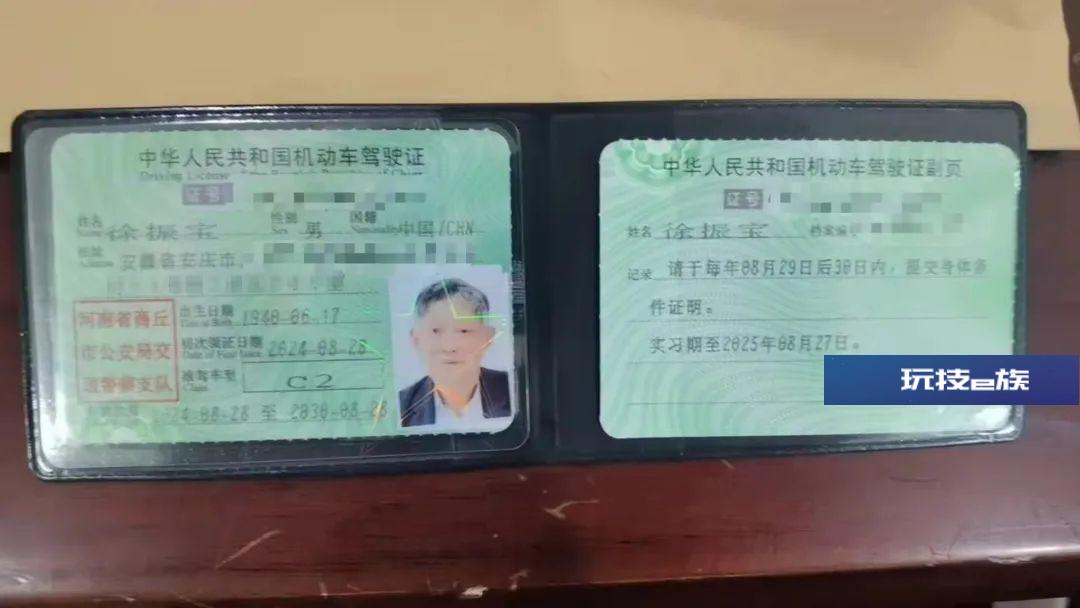 中华人民共和国机动车驾驶证
Driving License
证号
姓名 徐振宝 性别 男 国籍 中国/CHN
Name Sex Nationality
住址 安徽省安庆市
Address
河南省商丘
市公安局交
通警察支队
出生日期 1940-06-17
Date of Birth
初次领证日期 2024-08-28
Date of First Issue
准驾车型 C2
Class
24-08-28 至 2030-08-28
中华人民共和国机动车驾驶证副页
证号
姓名 徐振宝 档案编
记录 请于每年08月29日后30日内，提交身体条
件证明。
实习期至2025年08月27日。
玩技e族